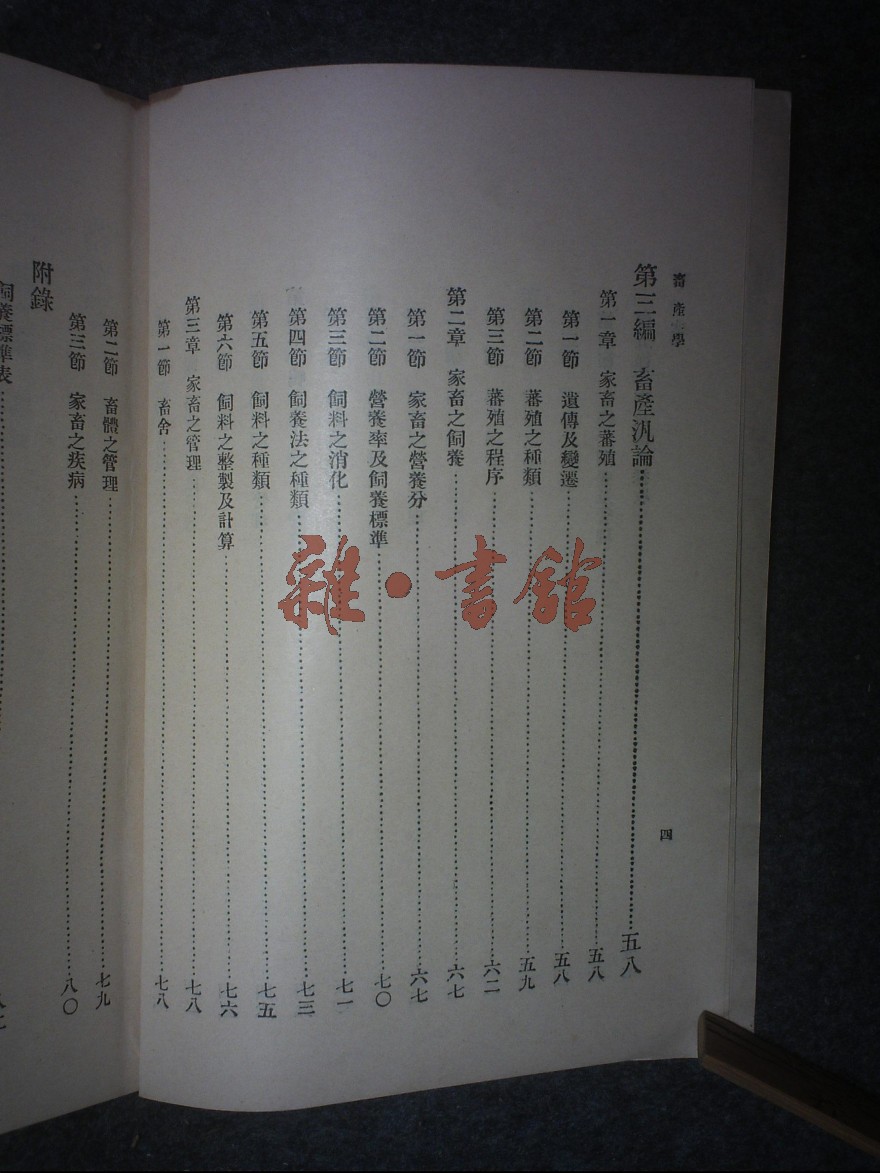 畜產學
四
第三編 畜產汎論 五八
第一章 家畜之蕃殖 五八
第一節 遺傳及變遷 五八
第二節 蕃殖之種類 五九
第三節 蕃殖之程序 六二
第二章 家畜之飼養 六七
第一節 家畜之營養分 六七
第二節 營養率及飼養標準 七〇
第三節 飼料之消化 七一
第四節 飼養法之種類 七三
第五節 飼料之種類 七五
第六節 飼料之整製及計算 七六
第三章 家畜之管理 七八
第一節 畜舍 七八
第二節 畜體之管理 七九
第三節 家畜之疾病 八〇
附錄
飼養標準表
雜・書館